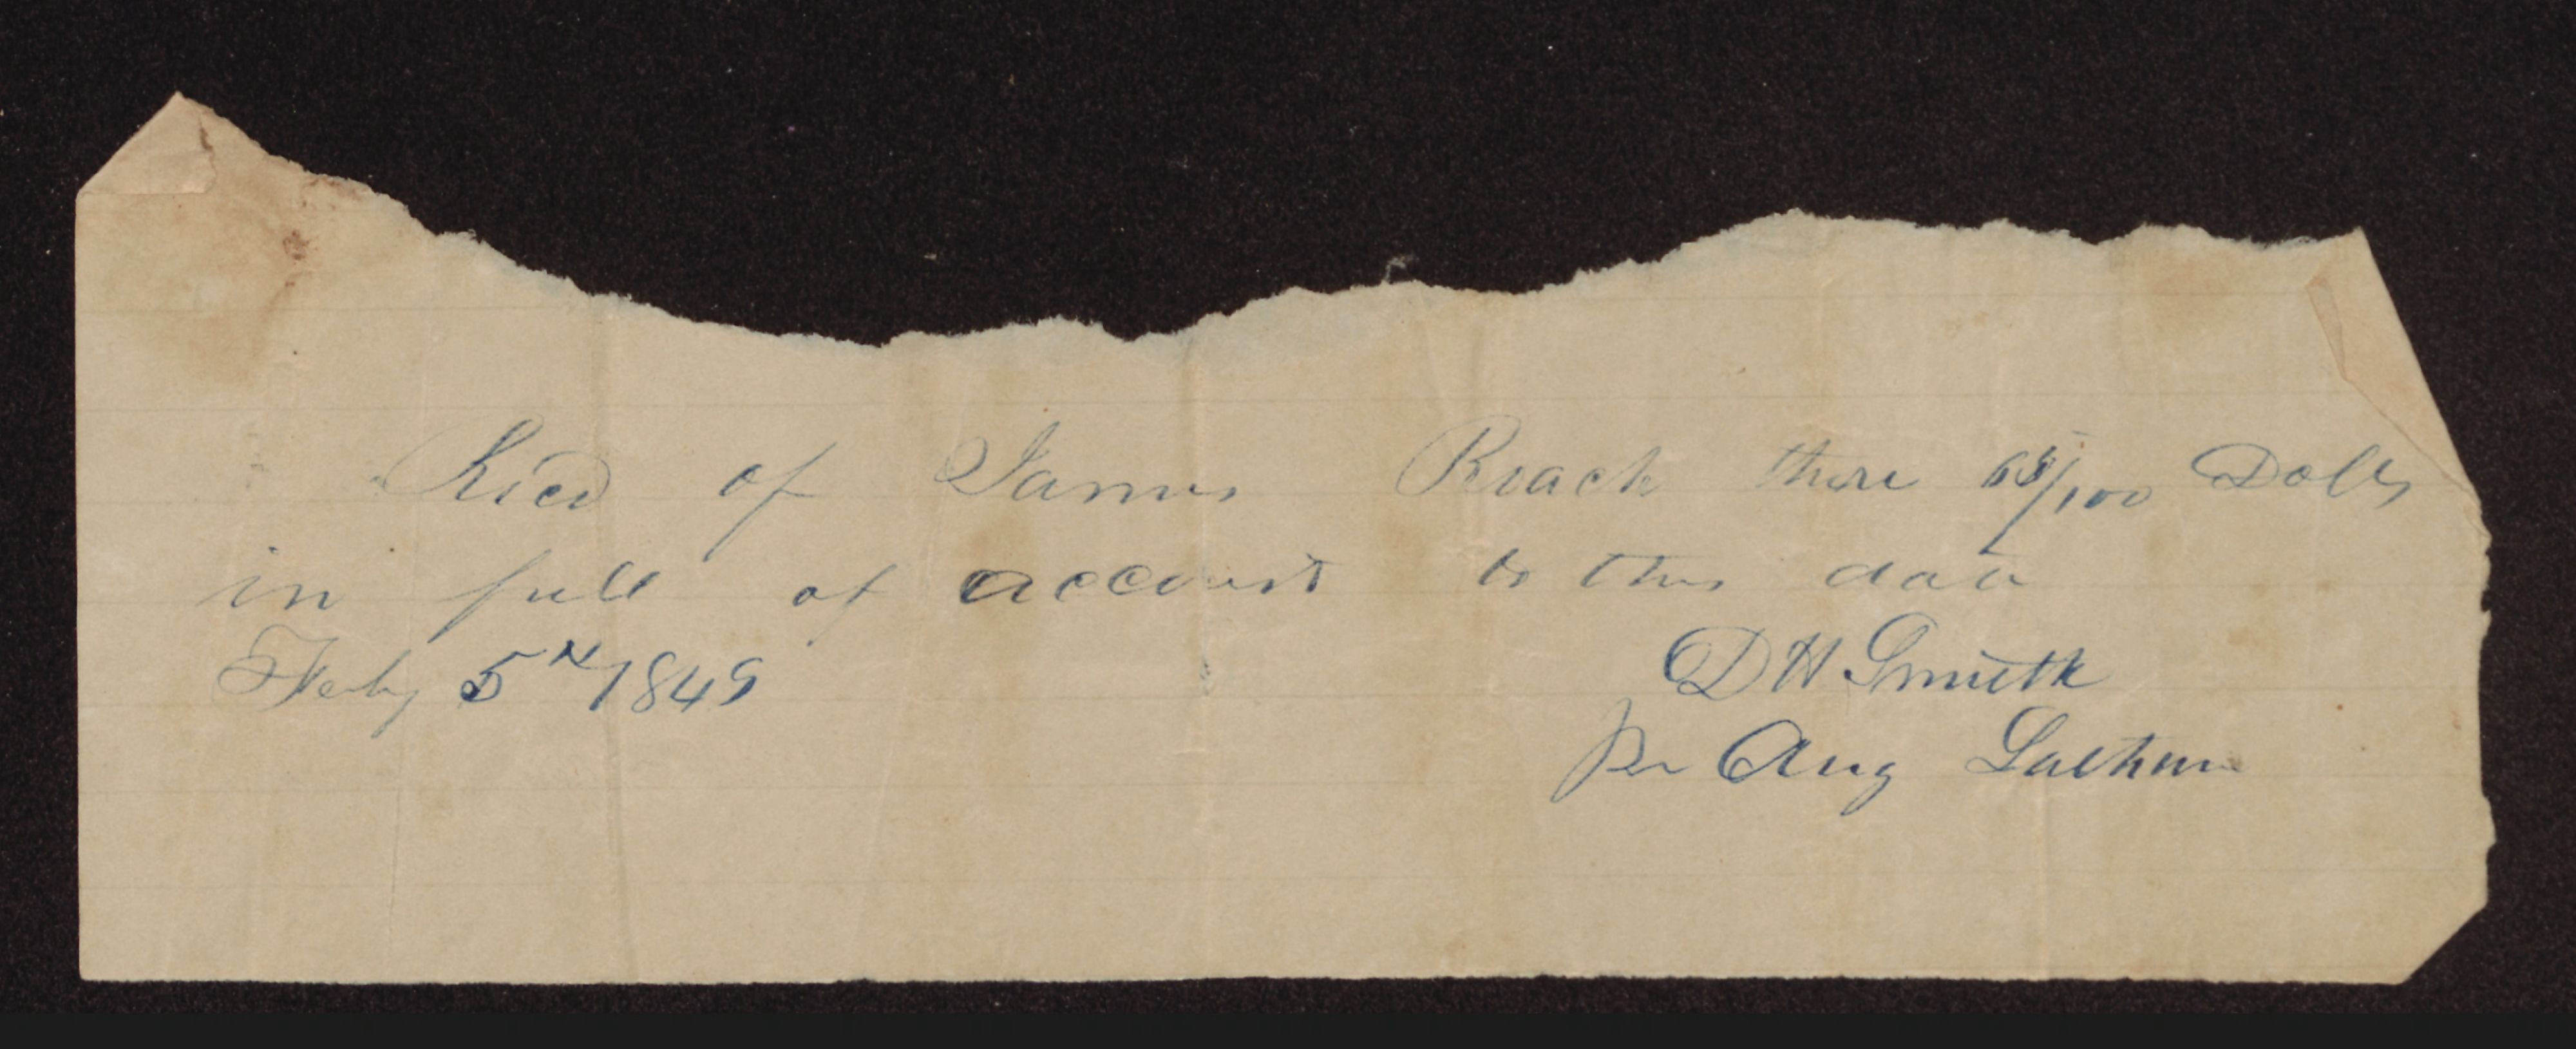 Recd of James Roach three 68/100 Dolls
in full of account to this date
Feby 5th 1849
D H Smith
per Aug Latham